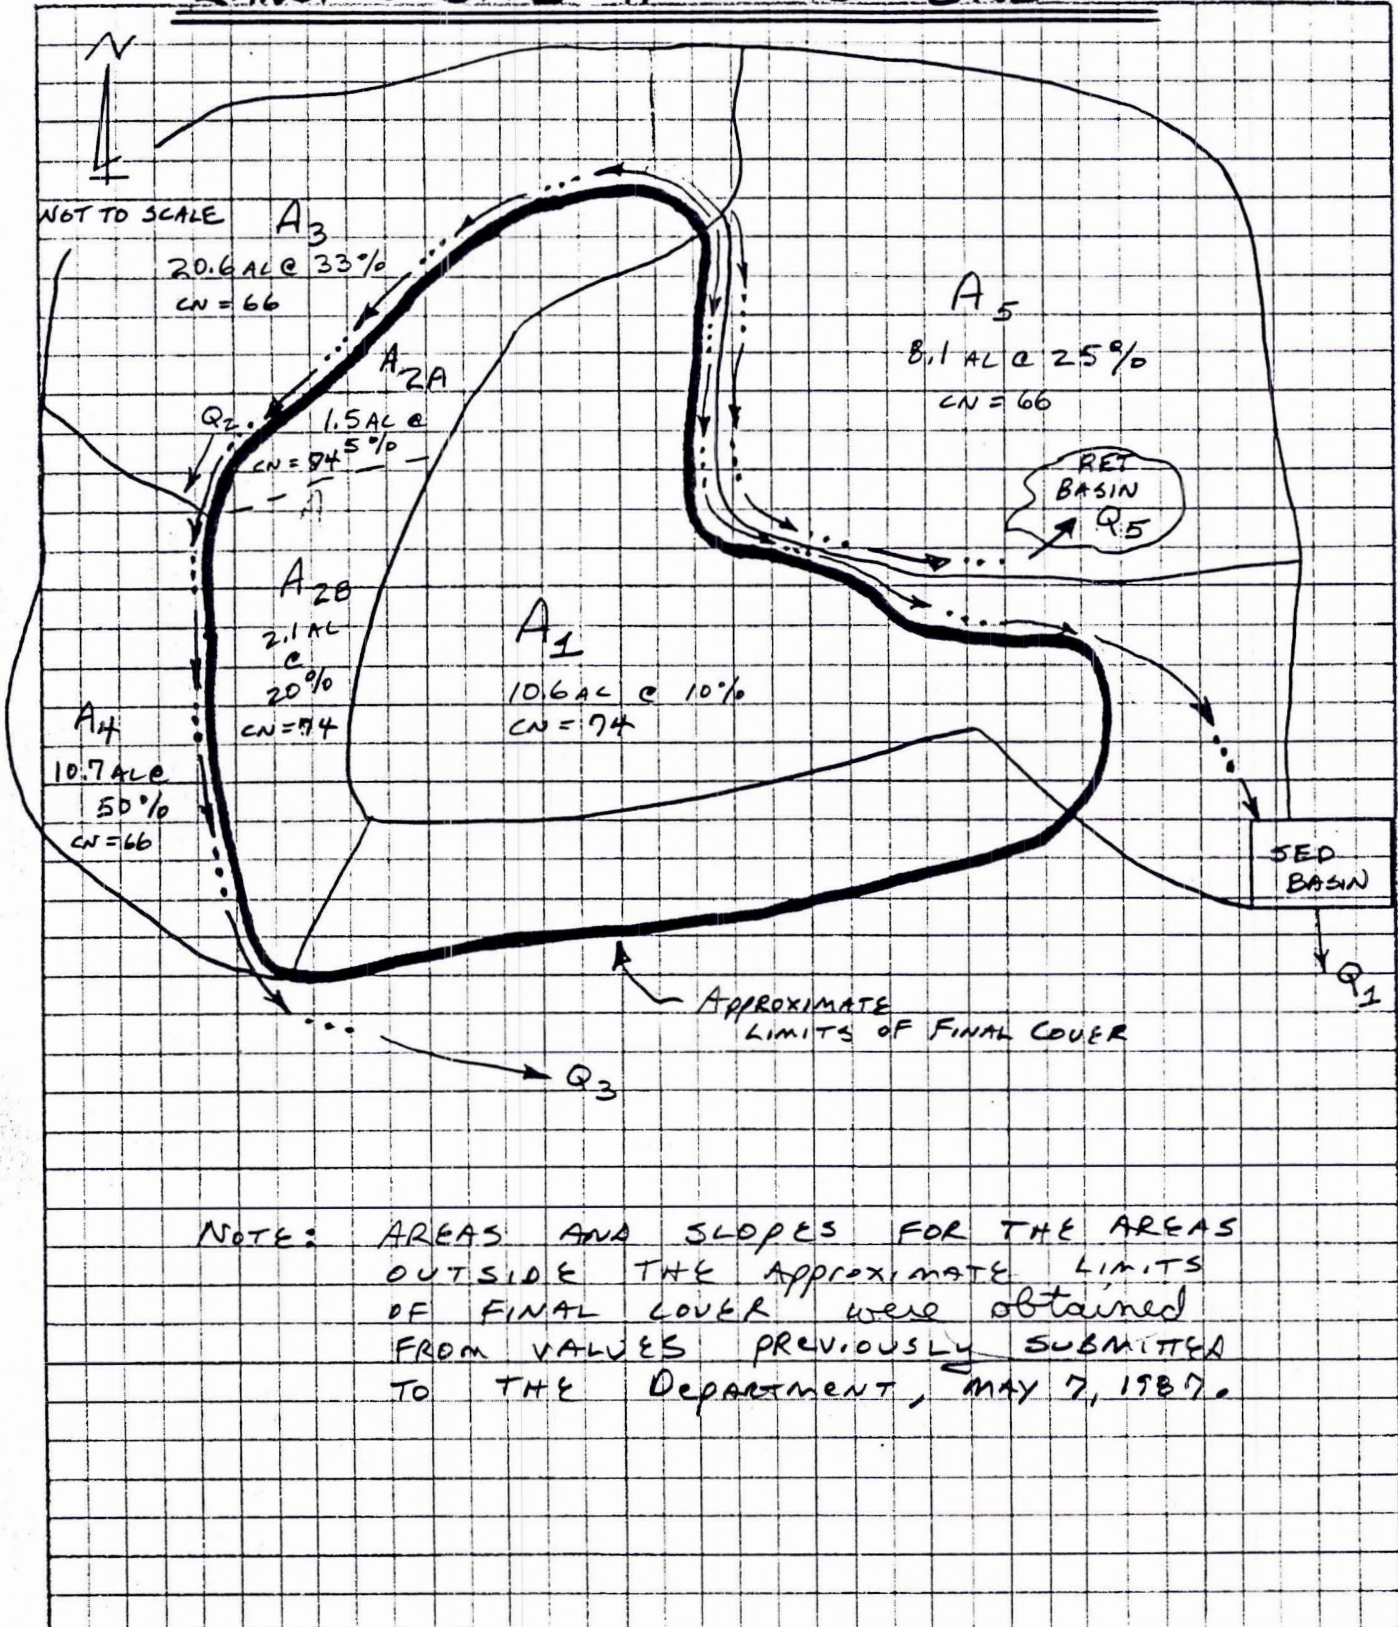 N
NOT TO SCALE
A3
20.6 AC @ 33%
CN = 66
A2A
1.5 AC @
5%
Q2
A5
8.1 AC @ 25%
CN = 66
RET
BASIN
Q5
A2B
2.1 AC
@
20%
CN = 74
A1
10.6 AC @ 10%
CN = 74
A4
10.7 AC @
50%
CN = 66
SED
BASIN
Q1
APPROXIMATE
LIMITS OF FINAL COVER
Q3
NOTE: AREAS AND SLOPES FOR THE AREAS
OUTSIDE THE APPROXIMATE LIMITS
OF FINAL COVER were obtained
FROM VALUES PREVIOUSLY SUBMITTED
TO THE DEPARTMENT, MAY 7, 1987.